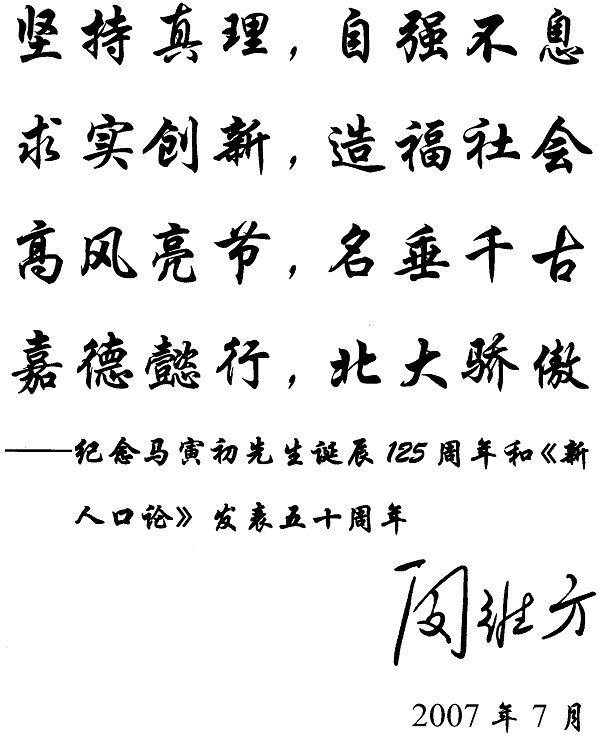 坚持真理，自强不息
求实创新，造福社会
高风亮节，名垂千古
嘉德懿行，北大骄傲
——纪念马寅初先生诞辰125周年和《新
人口论》发表五十周年
闵维方
2007年7月